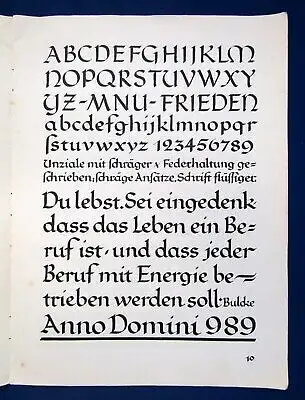 ABCDEFGHIJKLM
NOPQRSTUVWXY
YZ-MNU-FRIEDEN
abcdefghijklmnopqr
ſstuvwxyz 123456789
Unziale mit ſchräger Federhaltung ge-
ſchrieben; ſchräge Anſätze. Schrift flüſſiget.
Du lebst. Sei eingedenk
dass das Leben ein Be-
ruf ist, und dass jeder
Beruf mit Energie be-
trieben werden soll. Bulcke
Anno Domini 989
10